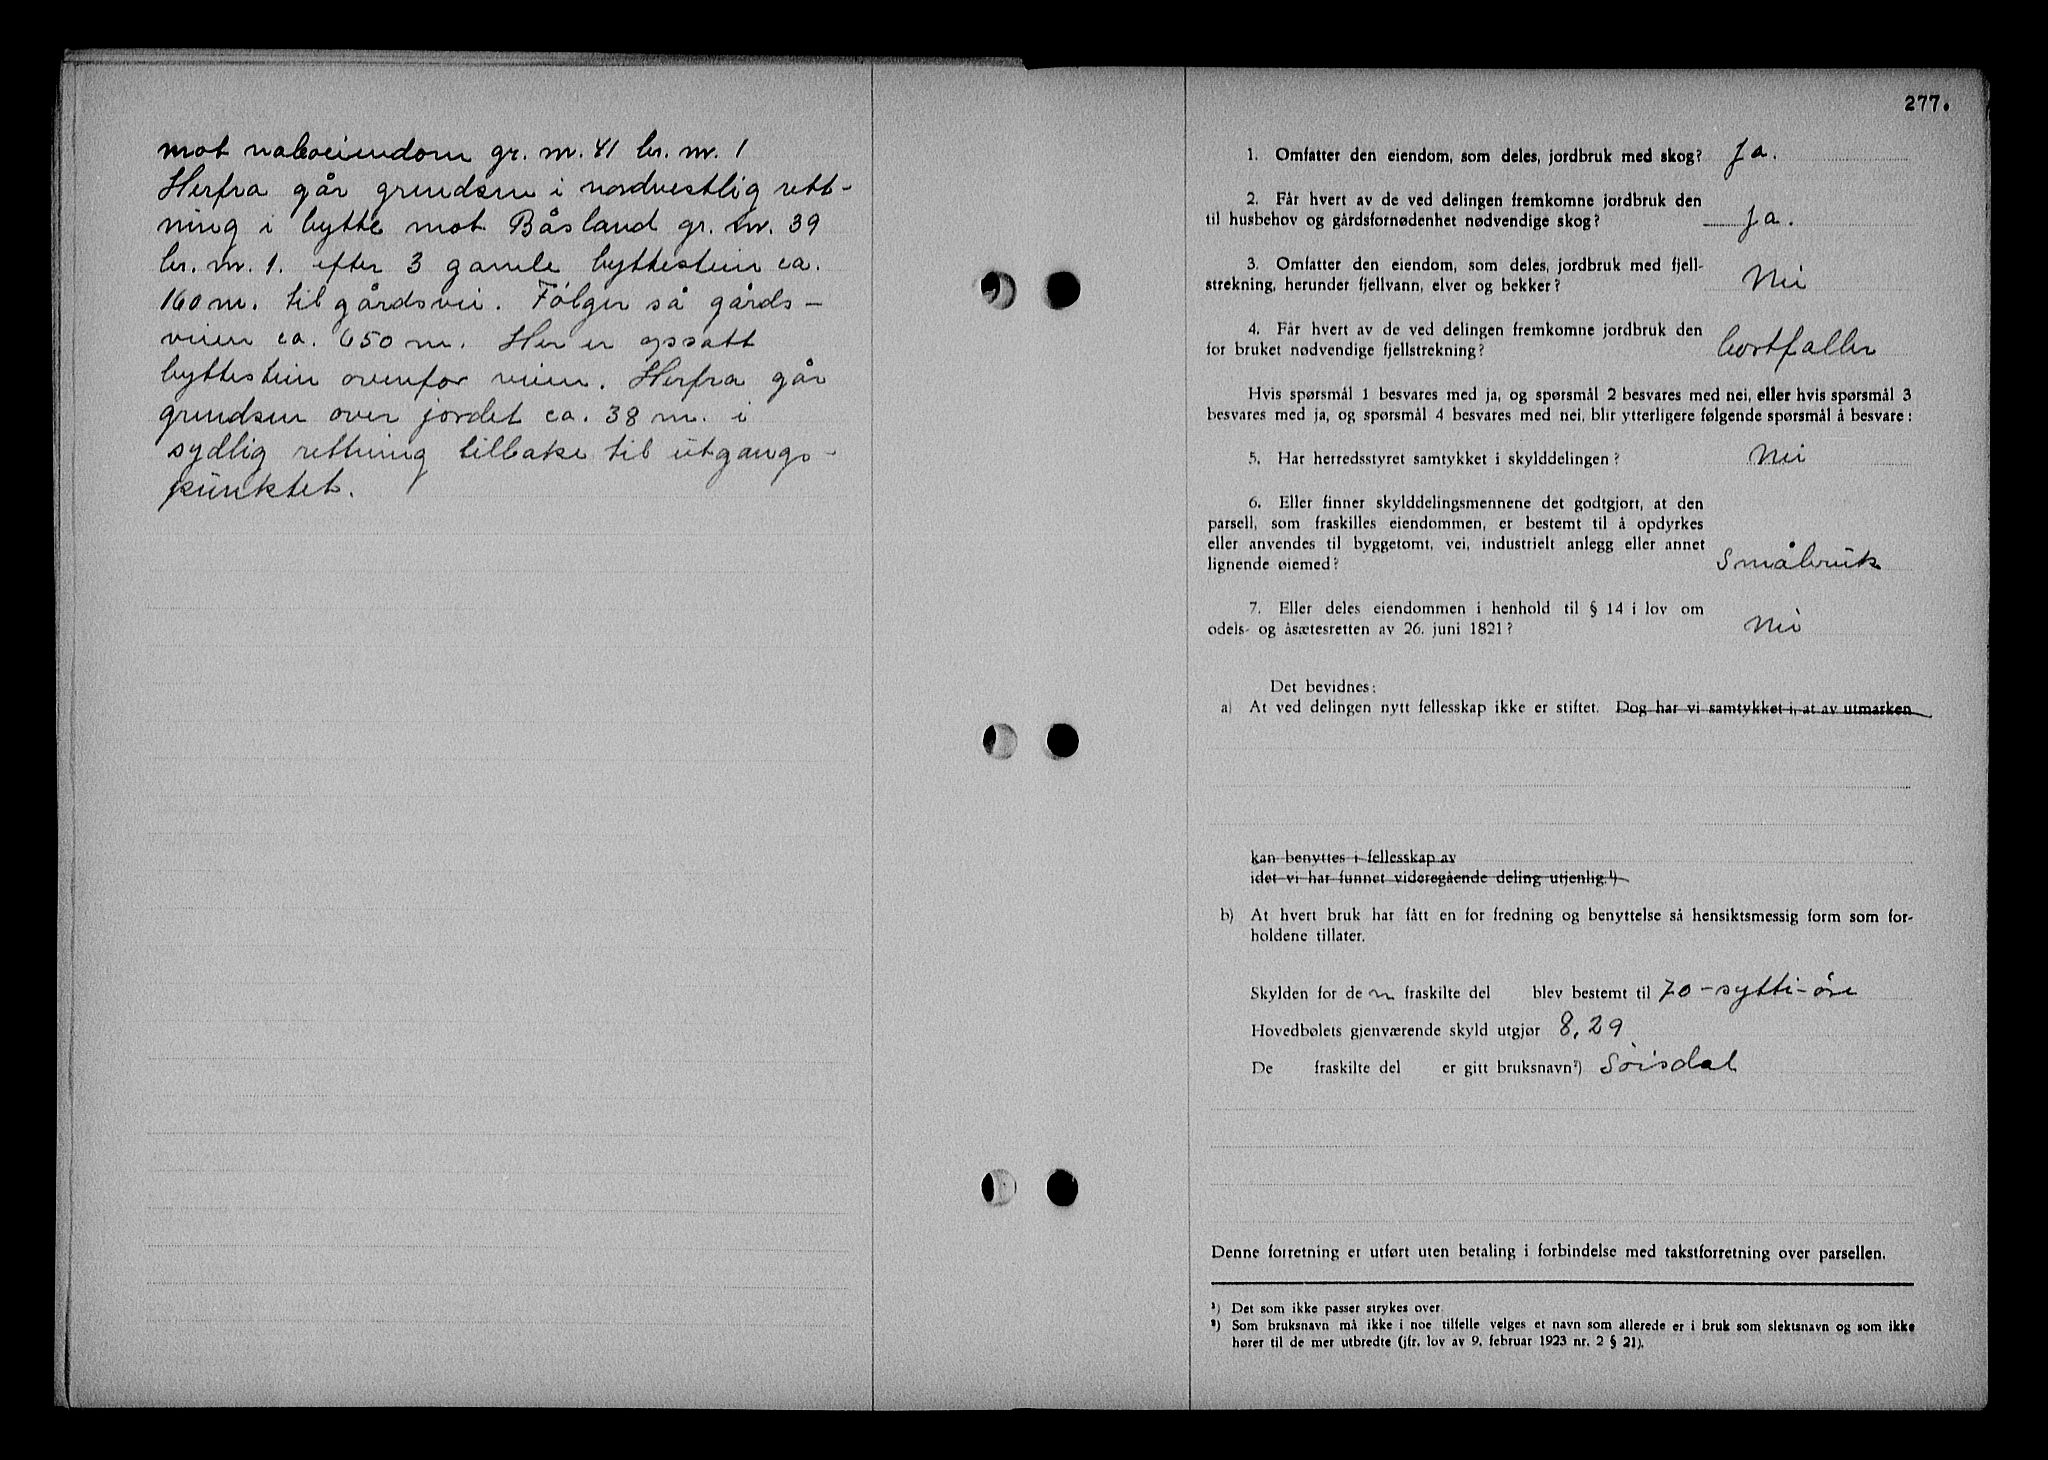 mot naboeiendom gr. nr. 41 br. nr. 1
Herfra går grendsen i nordvestlig rett-
ning i bytte mot Båsland gr. nr. 39
br. nr. 1. efter 3 gamle byttestein ca.
160 m. til gårdsvei. Følger så gårds-
veien ca. 650 m. Her er opsatt
byttestein ovenfor veien. Herfra går
grendsen over jordet ca. 38 m. i
sydlig rettning tilbake til utgangs-
punktet.
277.
1. Omfatter den eiendom, som deles, jordbruk med skog? Ja.
2. Får hvert av de ved delingen fremkomne jordbruk den
til husbehov og gårdsfornødenhet nødvendige skog? Ja.
3. Omfatter den eiendom, som deles, jordbruk med fjell-
strekning, herunder fjellvann, elver og bekker? Nei
4. Får hvert av de ved delingen fremkomne jordbruk den
for bruket nødvendige fjellstrekning? bortfaller
Hvis spørsmål 1 besvares med ja, og spørsmål 2 besvares med nei, eller hvis spørsmål 3
besvares med ja, og spørsmål 4 besvares med nei, blir ytterligere følgende spørsmål å besvare:
5. Har herredsstyret samtykket i skylddelingen? Nei
6. Eller finner skylddelingsmennene det godtgjort, at den
parsell, som fraskilles eiendommen, er bestemt til å opdyrkes
eller anvendes til byggetomt, vei, industrielt anlegg eller annet
lignende øiemed? Småbruk
7. Eller deles eiendommen i henhold til § 14 i lov om
odels- og åsætesretten av 26. juni 1821? Nei
Det bevidnes:
a) At ved delingen nytt fellesskap ikke er stiftet. Dog har vi samtykket i, at av utmarken
kan benyttes i fellesskap av
idet vi har funnet videregående deling utjenlig.¹)
b) At hvert bruk har fått en for fredning og benyttelse så hensiktsmessig form som for-
holdene tillater.
Skylden for de n fraskilte del blev bestemt til 70 - sytti - øre
Hovedbølets gjenværende skyld utgjør 8,29
De fraskilte del er gitt bruksnavn²) Soisdal
Denne forretning er utført uten betaling i forbindelse med takstforretning over parsellen.
¹) Det som ikke passer strykes over.
²) Som bruksnavn må ikke i noe tilfelle velges et navn som allerede er i bruk som slektsnavn og som ikke
hører til de mer utbredte (jfr. lov av 9. februar 1923 nr. 2 § 21).